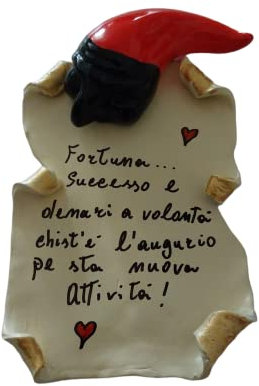 Fortuna...
Successo e
denari a volontà
chist'è l'augurio
pe sta nuova
Attività!